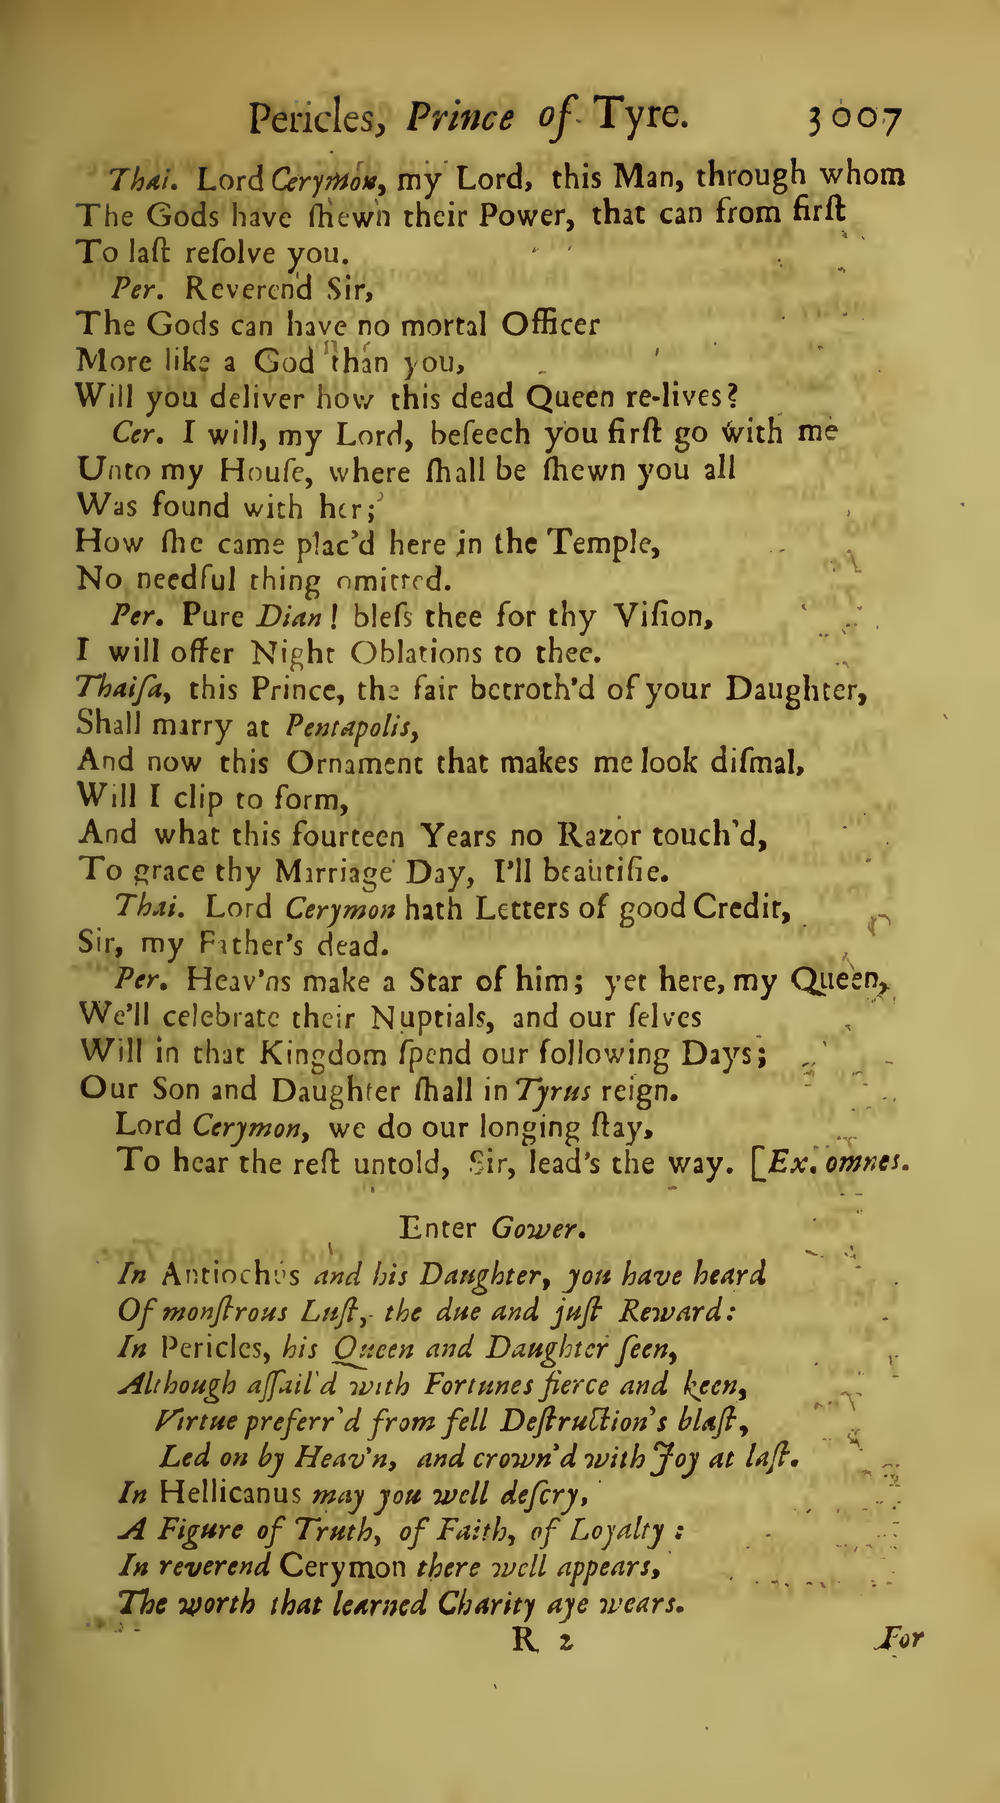 Pericles, Prince of Tyre. 3007
Thai. Lord Cerymon, my Lord, this Man, through whom
The Gods have ſhewn their Power, that can from firſt
To laſt reſolve you.
Per. Reverend Sir,
The Gods can have no mortal Officer
More like a God than you,
Will you deliver how this dead Queen re-lives?
Cer. I will, my Lord, beſeech you firſt go with me
Unto my Houſe, where ſhall be ſhewn you all
Was found with her;
How ſhe came plac'd here in the Temple,
No needful thing omitted.
Per. Pure Dian! bleſs thee for thy Viſion,
I will offer Night Oblations to thee.
Thaiſa, this Prince, the fair betroth'd of your Daughter,
Shall marry at Pentapolis,
And now this Ornament that makes me look diſmal,
Will I clip to form,
And what this fourteen Years no Razor touch'd,
To grace thy Marriage Day, I'll beautifie.
Thai. Lord Cerymon hath Letters of good Credit,
Sir, my Father's dead.
Per. Heav'ns make a Star of him; yet here, my Queen,
We'll celebrate their Nuptials, and our ſelves
Will in that Kingdom ſpend our following Days;
Our Son and Daughter ſhall in Tyrus reign.
Lord Cerymon, we do our longing ſtay,
To hear the reſt untold, Sir, lead's the way. [Ex. omnes.
Enter Gower.
In Antiochus and his Daughter, you have heard
Of monſtrous Luſt, the due and juſt Reward:
In Pericles, his Queen and Daughter ſeen,
Although aſſail'd with Fortunes fierce and keen,
Virtue preferr'd from fell Deſtruction's blaſt,
Led on by Heav'n, and crown'd with Joy at laſt.
In Hellicanus may you well deſcry,
A Figure of Truth, of Faith, of Loyalty:
In reverend Cerymon there well appears,
The worth that learned Charity aye wears.
R 2 For